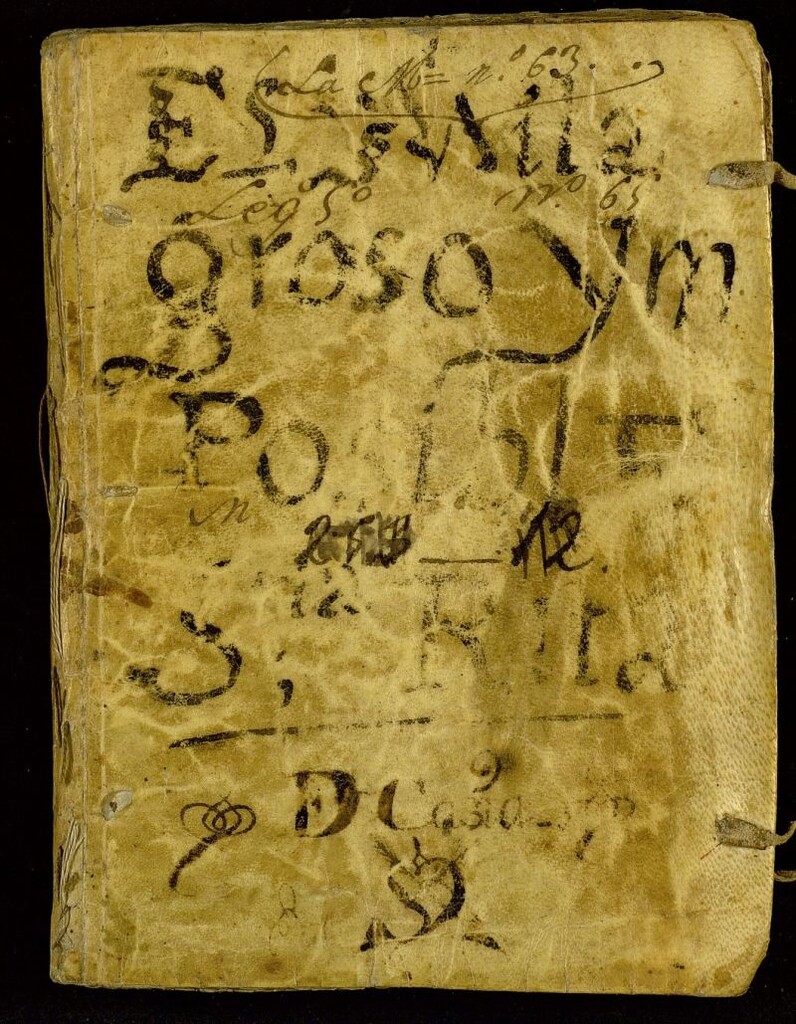 La Mᵃ = n.º 63.
El Mila
Legº 5º nº 65
groso ym
PosiblE
12.
S.ta Rita
D Casia